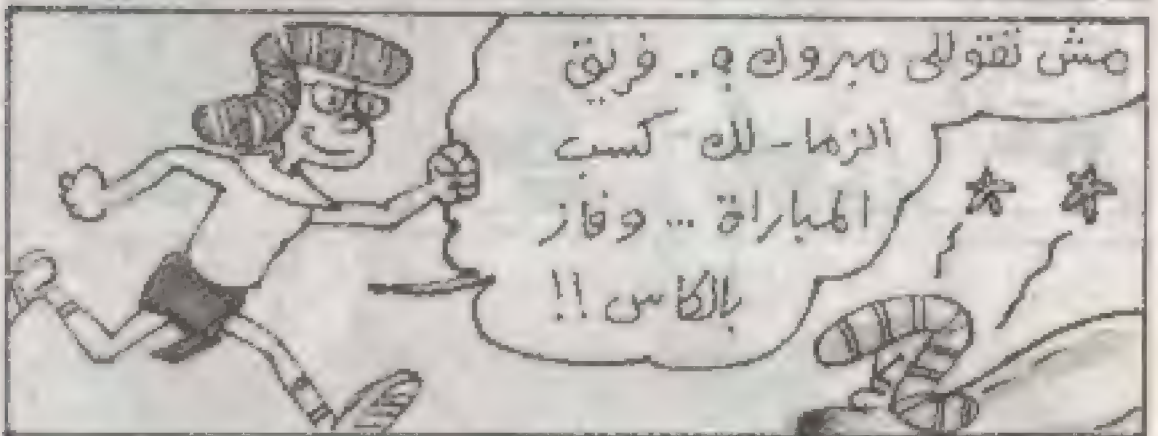 مش تقوللى مبروك ؟.. فريق
الزما-لك - كسب
المباراة ... وفاز
بالكاس !!